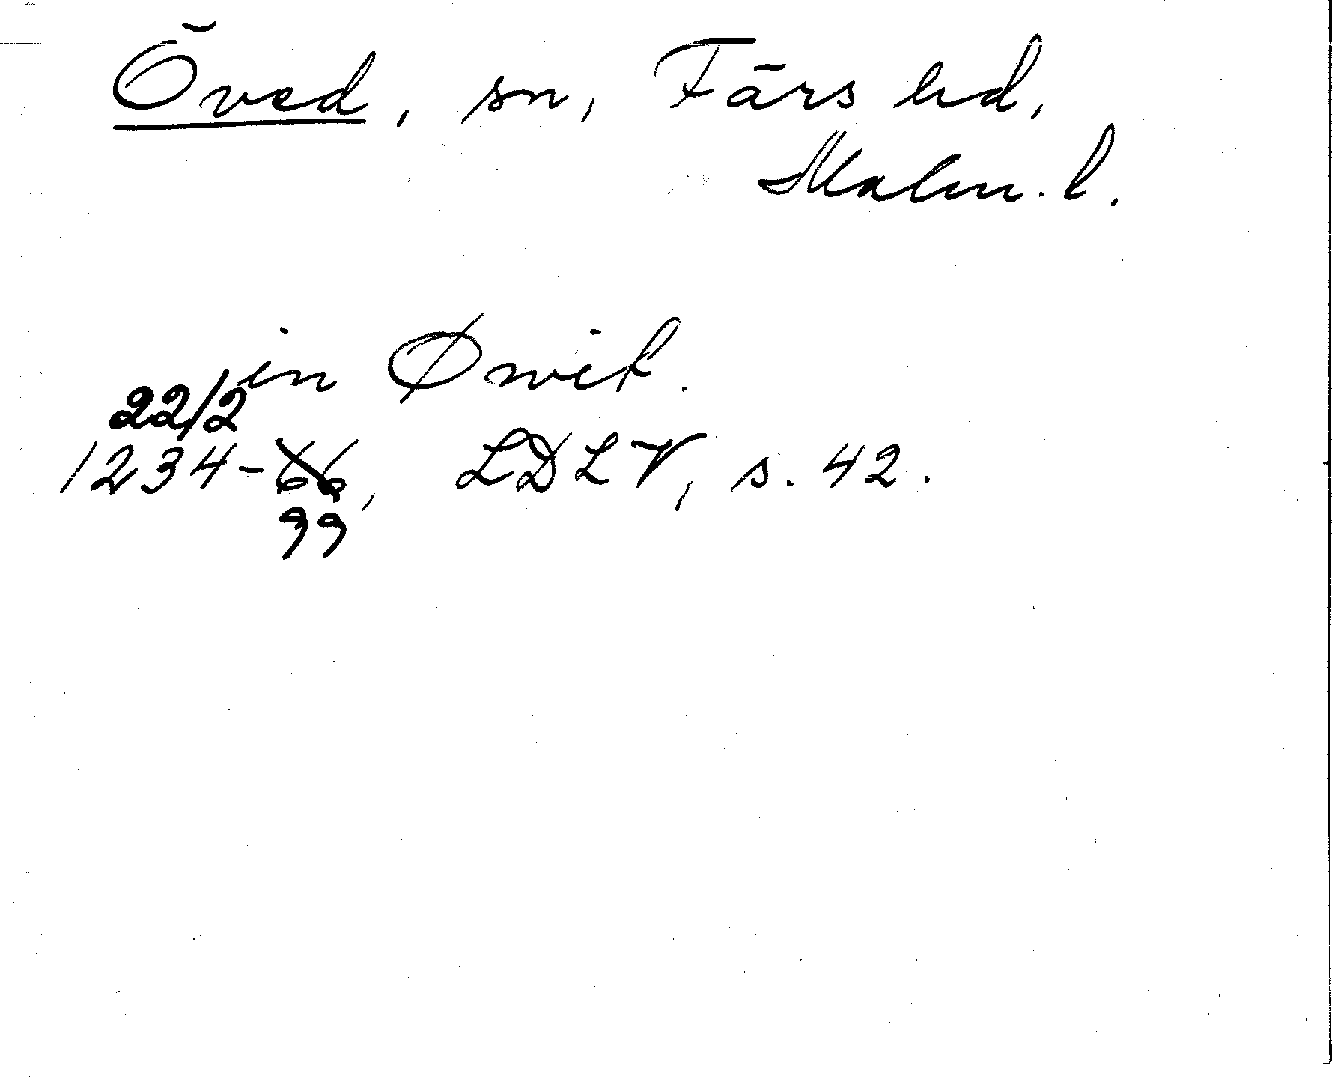 Öved, sn, Färs hd,
Malm. l.
in Øwit.
22/2
1234-66, LDLV, s. 42.
99